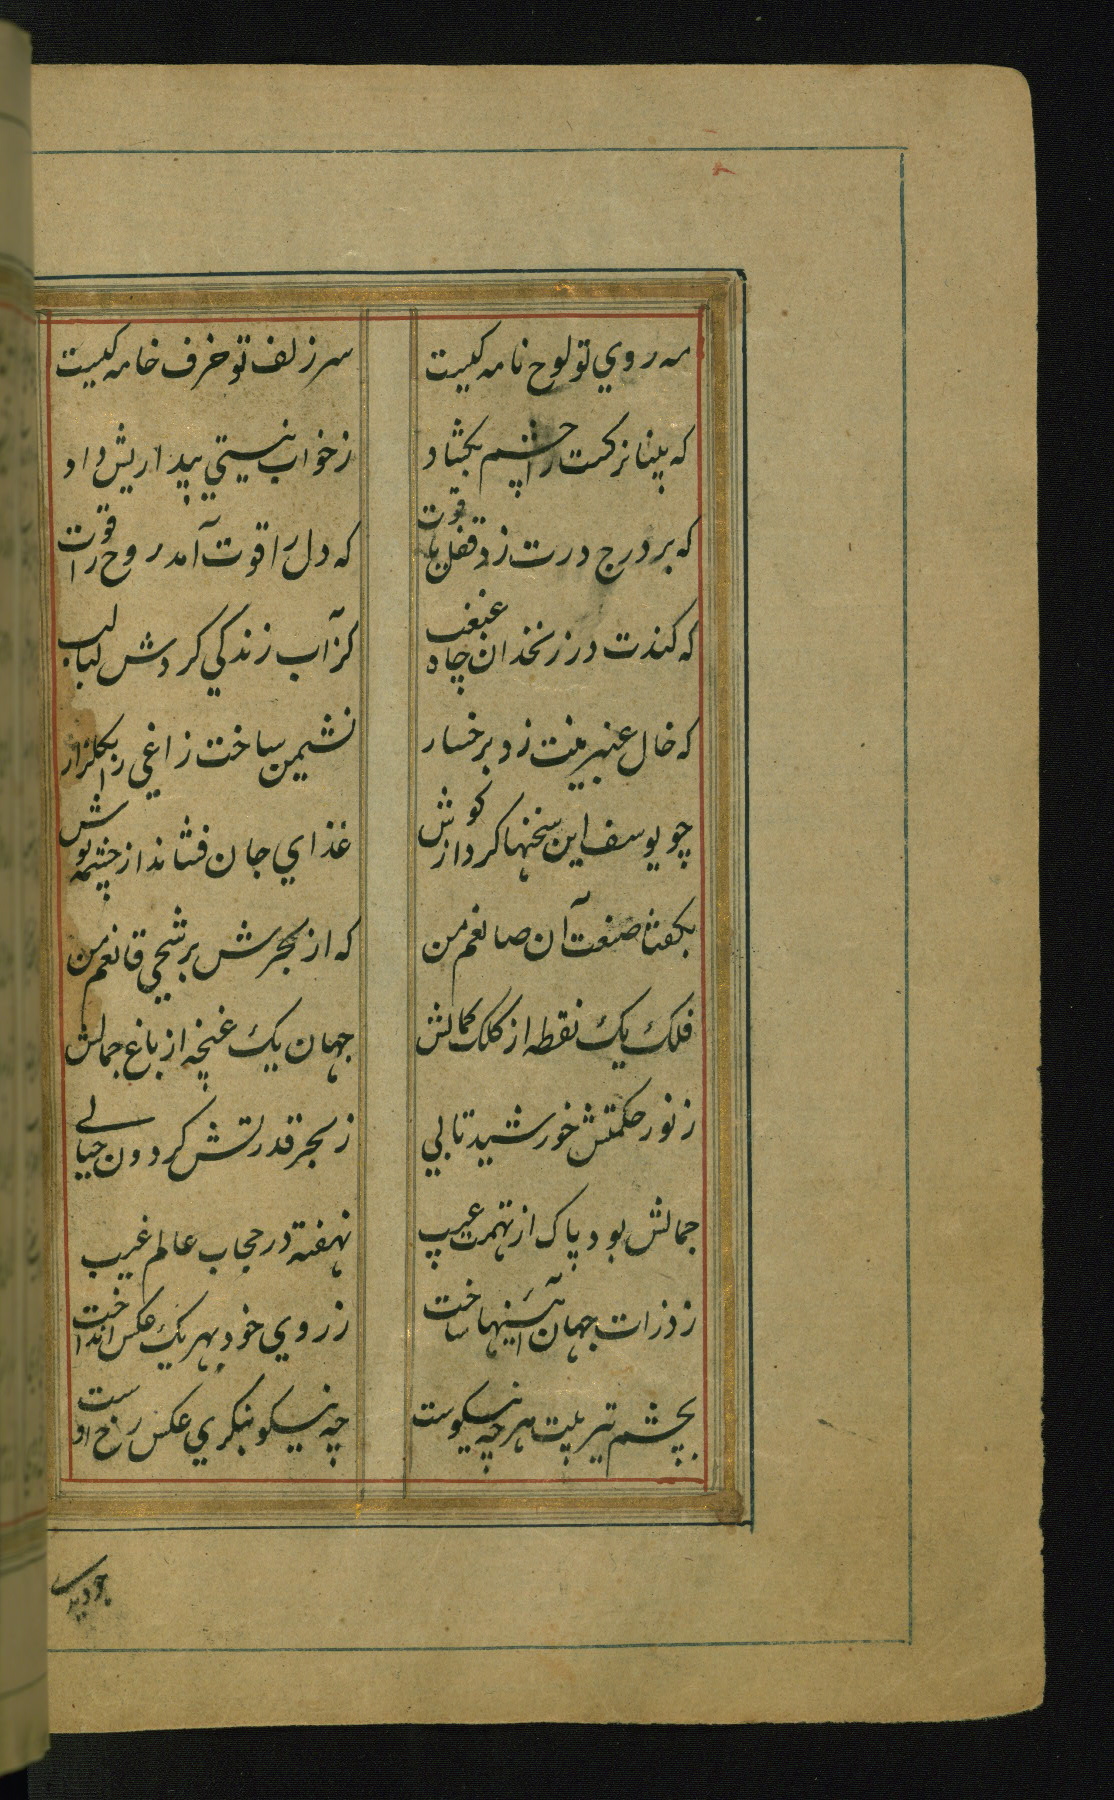 مه روي تو لوح نامه كيست سر زلف تو حرف خامه كيست
كه بينا نركست را چشم بكشاد ز خواب نيستي بيداريش داد
كه بر درج درت زد قفل ياقوت كه دل را قوت آمد روح را قوت
كه كندت در زنخدان چاه غبغب كز آب زندكي كردش لبالب
كه خال عنبرينت زد برخسار نشيمن ساخت زاغي را بكلزار
چو يوسف اين سخنها كرد ازو كوش غذاي جان فشاند از چشمه نوش
بكفتا صنعت آن صانعم من كه از بحرش برشحي قانعم من
فلك يك نقطه از كلك كمالش جهان يك غنچه از باغ جمالش
ز نور حكمتش خورشيد تابي ز بحر قدرتش كردون حبابي
جمالش بود پاك از تهمت عيب نهفته در حجاب عالم غيب
ز ذرات جهان آئينها ساخت ز روي خود بهر يك عكس انداخت
بچشم تيزبينت هر چه نيكوست چه نيكو بنكري عكس رخ اوست
چو ديدي